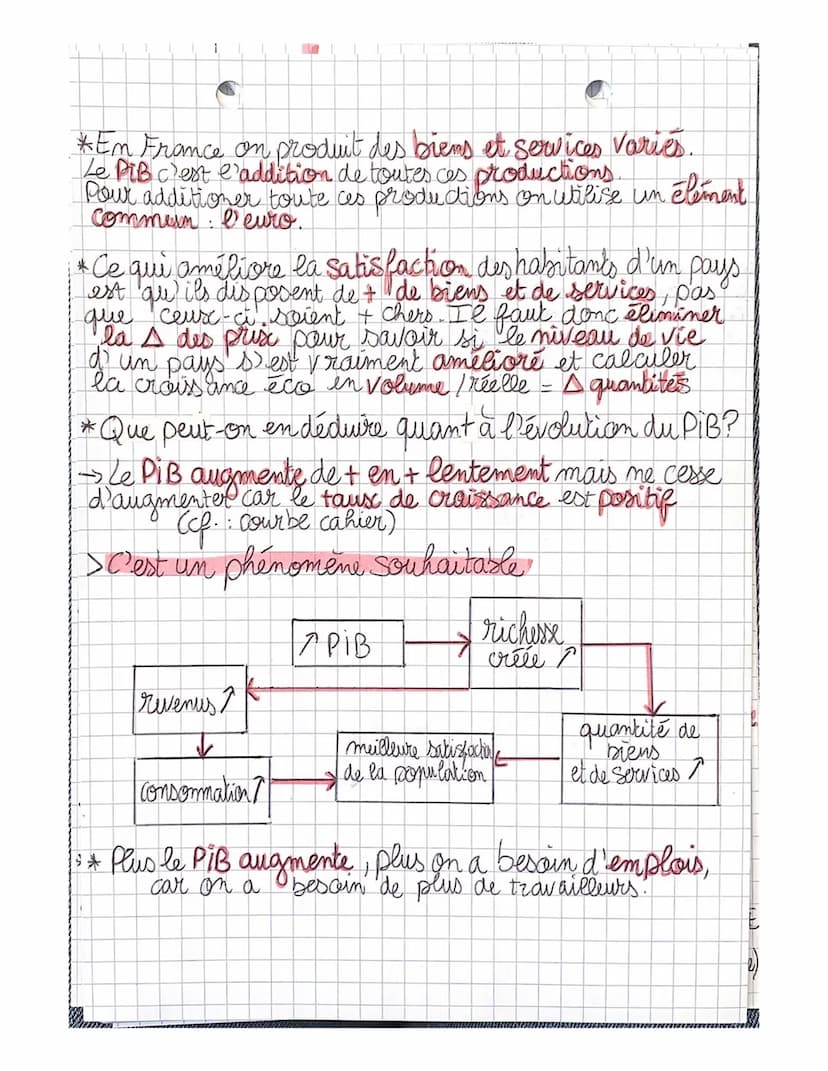 *En France on produit des biens et services variés.
Le PiB c'est l'addition de toutes ces productions.
Pour additioner toute ces productions on utilise un élément
commun : l'euro.
*Ce qui améliore la satisfaction des habitants d'un pays
est qu'ils disposent de + de biens et de services, pas
que ceux-ci soient + chers. Il faut donc éliminer
la Δ des prix pour savoir si le niveau de vie
d'un pays s'est vraiment amélioré et calculer
la croissance éco en volume / réelle = Δ quantités
*Que peut-on en déduire quant à l'évolution du PiB?
→ Le PiB augmente de + en + lentement mais ne cesse
d'augmenter car le taux de croissance est positif
(cf. : courbe cahier)
> C'est un phénomène souhaitable
↗ PiB
richesse
créée ↗
revenus ↗
quantité de
biens
et de services ↗
meilleure satisfaction
de la population
consommation ↗
* Plus le PiB augmente, plus on a besoin d'emplois,
car on a besoin de plus de travailleurs.